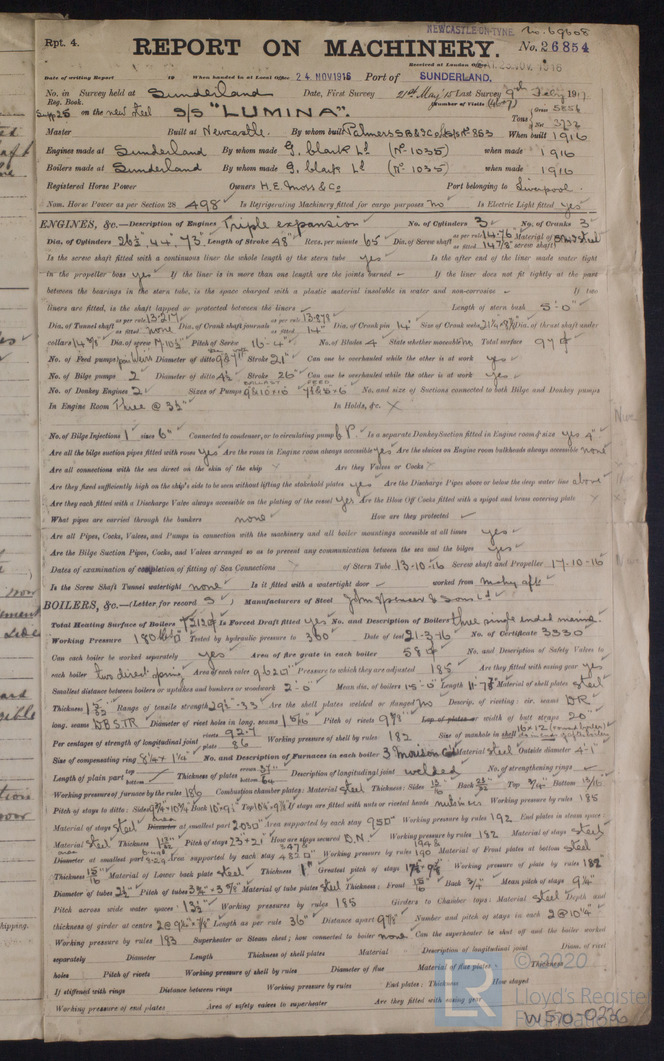 NEWCASTLE-ON-TYNE. No. 69608
Rpt. 4. REPORT ON MACHINERY. No. 26854
Received at London Office
Date of writing Report 19 When handed in at Local Office 24.NOV1916 Port of SUNDERLAND.
No. in Survey held at Sunderland Date, First Survey 21st May '15 Last Survey 9th 1917
Reg. Book. (Number of Visits
on the new steel S/S "LUMINA". Tons Gross 5856 Net 3732
Master Built at Newcastle. By whom built Palmers S.B. & I. Co. No 863 When built 1916
Engines made at Sunderland By whom made G. Clark Ld (No 1035) when made 1916
Boilers made at Sunderland By whom made G. Clark Ld (No 1035) when made 1916
Registered Horse Power Owners H.E. Moss & Co Port belonging to Liverpool.
Nom. Horse Power as per Section 28 498 Is Refrigerating Machinery fitted for cargo purposes no Is Electric Light fitted yes
ENGINES, &c.—Description of Engines Triple expansion No. of Cylinders 3 No. of Cranks 3
Dia. of Cylinders 26½, 44, 73 Length of Stroke 48" Revs. per minute 65 Dia. of Screw shaft as per rule 14.76 as fitted 14⅞ Material of screw shaft Steel
Is the screw shaft fitted with a continuous liner the whole length of the stern tube yes Is the after end of the liner made water tight
in the propeller boss yes If the liner is in more than one length are the joints burned If the liner does not fit tightly at the part
between the bearings in the stern tube, is the space charged with a plastic material insoluble in water and non-corrosive If two
liners are fitted, is the shaft lapped or protected between the liners Length of stern bush 5'-0"
Dia. of Tunnel shaft as per rule 13.217 as fitted none Dia. of Crank shaft journals as per rule 13.878 as fitted 14" Dia. of Crank pin 14" Size of Crank webs Dia. of thrust shaft under
collars 14⅞ Dia. of screw 17-10½ Pitch of Screw 16-4" No. of Blades 4 State whether moveable no, Total surface 97
No. of Feed pumps Diameter of ditto Stroke 21" Can one be overhauled while the other is at work yes
No. of Bilge pumps 2 Diameter of ditto 4½ Stroke 26" Can one be overhauled while the other is at work yes
No. of Donkey Engines 2 Sizes of Pumps BALLAST FEED No. and size of Suctions connected to both Bilge and Donkey pumps
In Engine Room Three @ 3½" In Holds, &c.
No. of Bilge Injections 1 sizes 6" Connected to condenser, or to circulating pump C.P. Is a separate Donkey Suction fitted in Engine room & size yes 4"
Are all the bilge suction pipes fitted with roses yes Are the roses in Engine room always accessible yes Are the sluices on Engine room bulkheads always accessible none
Are all connections with the sea direct on the skin of the ship Are they Valves or Cocks
Are they fixed sufficiently high on the ship's side to be seen without lifting the stokehold plates yes Are the Discharge Pipes above or below the deep water line above
Are they each fitted with a Discharge Valve always accessible on the plating of the vessel yes Are the Blow Off Cocks fitted with a spigot and brass covering plate
What pipes are carried through the bunkers none How are they protected
Are all Pipes, Cocks, Valves, and Pumps in connection with the machinery and all boiler mountings accessible at all times yes
Are the Bilge Suction Pipes, Cocks, and Valves arranged so as to prevent any communication between the sea and the bilges yes
Dates of examination of completion of fitting of Sea Connections of Stern Tube 13-10-16 Screw shaft and Propeller 17-10-16
Is the Screw Shaft Tunnel watertight none Is it fitted with a watertight door worked from mchy aft.
BOILERS, &c.—(Letter for record S) Manufacturers of Steel John Spencer & Sons Ld
Total Heating Surface of Boilers 7212 Is Forced Draft fitted yes No. and Description of Boilers three single ended marine.
Working Pressure 180 lbs Tested by hydraulic pressure to 360 Date of test 21-3-16 No. of Certificate 3330
Can each boiler be worked separately yes Area of fire grate in each boiler 58 No. and Description of Safety Valves to
each boiler two direct spring Area of each valve 9.62 Pressure to which they are adjusted 185 Are they fitted with easing gear yes
Smallest distance between boilers or uptakes and bunkers or woodwork 2'-0" Mean dia. of boilers 15'-0" Length 11'-7⅞" Material of shell plates steel
Thickness Range of tensile strength 29½-33 Are the shell plates welded or flanged no Descrip. of riveting: cir. seams D.R.
long. seams D.B.S.T.R. Diameter of rivet holes in long. seams 1 5/16 Pitch of rivets 9⅛ Lap of plates or width of butt straps 20"
Per centages of strength of longitudinal joint rivets 92.7 plate 86 Working pressure of shell by rules 182 Size of manhole in shell
Size of compensating ring No. and Description of Furnaces in each boiler 3 Morison Material steel Outside diameter 4'-1"
Length of plain part top bottom Thickness of plates crown bottom Description of longitudinal joint welded No. of strengthening rings
Working pressure of furnace by the rules 186 Combustion chamber plates: Material steel Thickness: Sides Back Top Bottom
Pitch of stays to ditto: Sides Back Top If stays are fitted with nuts or riveted heads Working pressure by rules 185
Material of stays steel area at smallest part 2.030 Area supported by each stay 95 Working pressure by rules 192 End plates in steam space:
Material steel Thickness Pitch of stays 23 x 21 How are stays secured D.N. Working pressure by rules 182 Material of stays steel
Diameter at smallest part Area supported by each stay Working pressure by rules Material of Front plates at bottom steel
Thickness 15/16 Material of Lower back plate steel Thickness 1" Greatest pitch of stays Working pressure of plate by rules 182
Diameter of tubes 2½ Pitch of tubes Material of tube plates steel Thickness: Front 15/16 Back ¾ Mean pitch of stays 9¼
Pitch across wide water spaces 13½ Working pressures by rules 185 Girders to Chamber tops: Material steel Depth and
thickness of girder at centre Length as per rule 36" Distance apart 9⅞ Number and pitch of stays in each 2 @ 10¼
Working pressure by rules 183 Superheater or Steam chest; how connected to boiler none Can the superheater be shut off and the boiler worked
separately Diameter Length Thickness of shell plates Material Description of longitudinal joint Diam. of rivet
holes Pitch of rivets Working pressure of shell by rules Diameter of flue Material of flue plates Thickness
If stiffened with rings Distance between rings Working pressure by rules End plates: Thickness How stayed
Working pressure of end plates Area of safety valves to superheater Are they fitted with easing gear
© 2020
LR
Lloyd's Register
Foundation
W590-0236